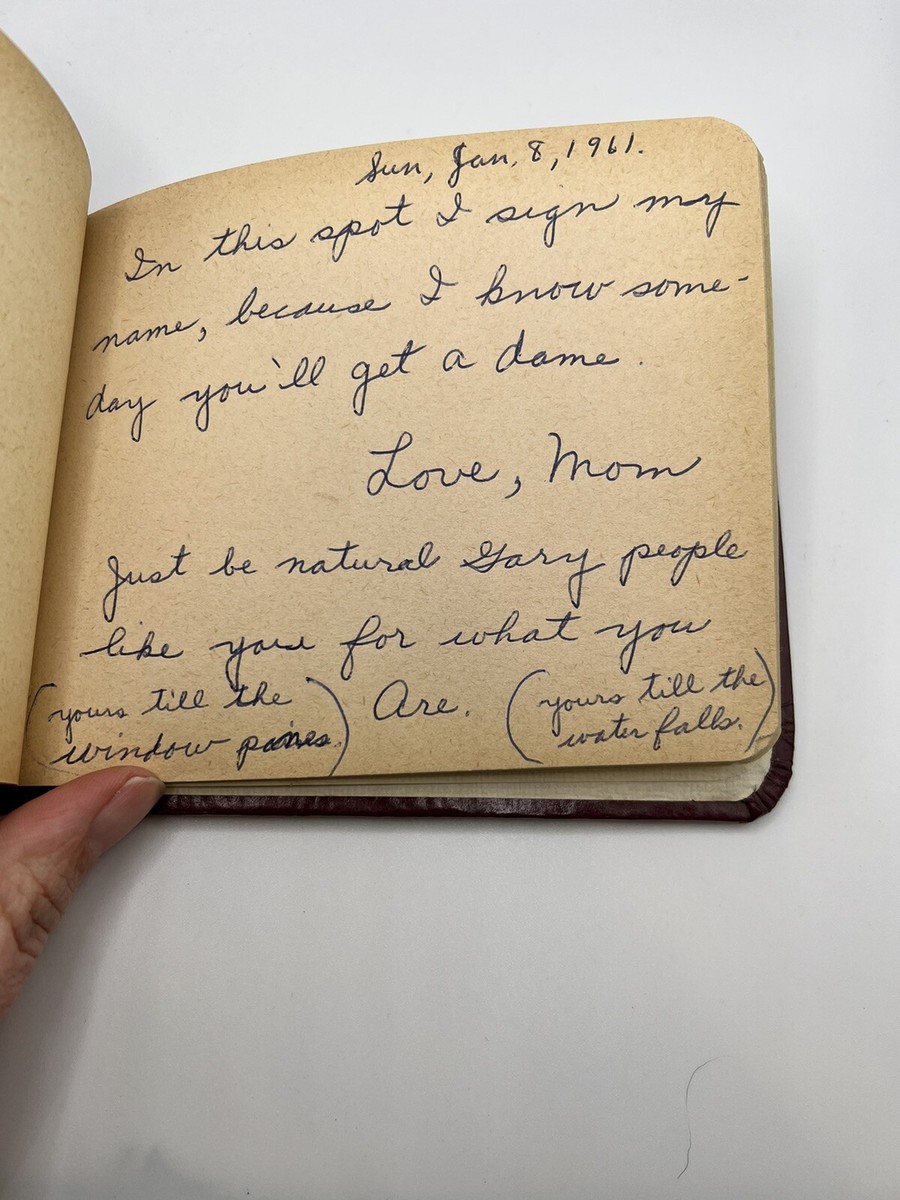 Sun, Jan. 8, 1961.
In this spot I sign my
name, because I know some-
day you'll get a dame.
Love, Mom
Just be natural Gary people
like you for what you
Are.
(yours till the
window panes.)
(yours till the
water falls.)